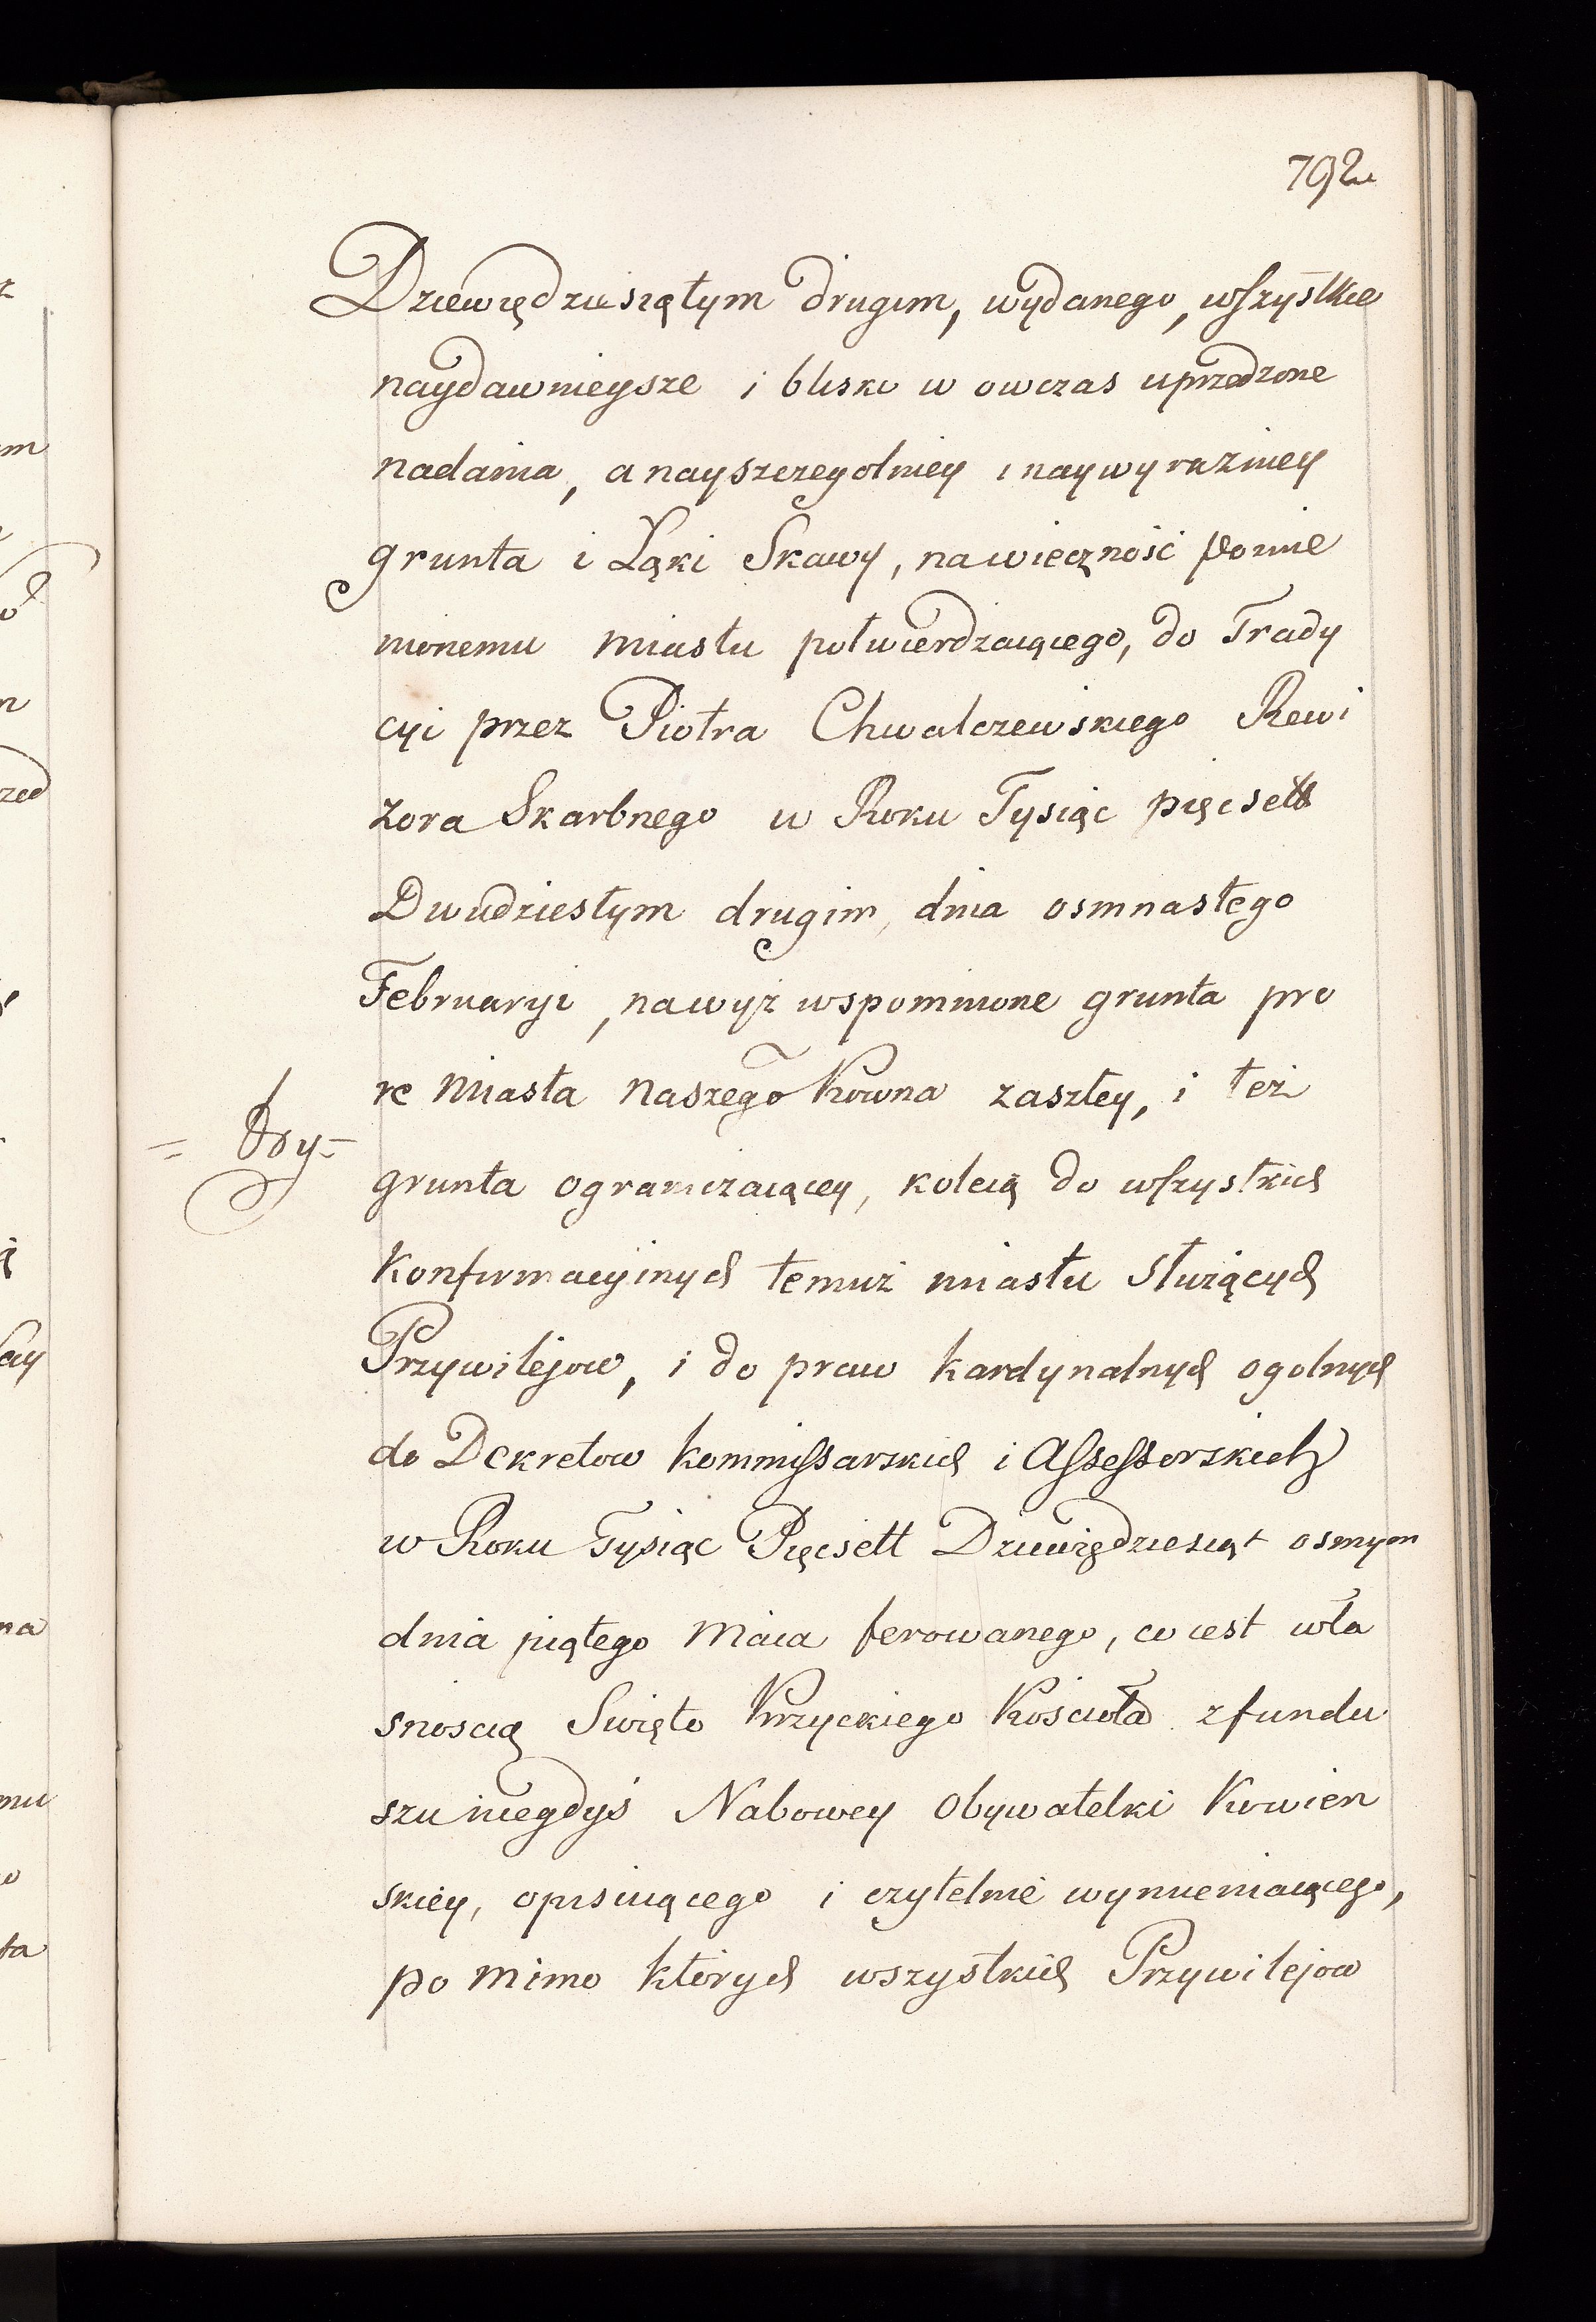 792
Dziewiędziesiątym drugim, wydanego, wszystkie
naydawnieysze i blisko w owczas uprzedzone
nadania, a nayszczegolniey i naywyrazniey
grunta i Łąki Skawy, nawieczność pomie
nionemu miastu potwierdzaiącego, do Trady
cyi przez Piotra Chwalczewskiego Rewi
zora Skarbnego w Roku Tysiąc pięcsett
Dwudziestym drugim, dnia osmnastego
Februaryi, nawyż wspomnione grunta pro
re miasta naszego Kowna zaszłey, i też
grunta ograniczaiącey, koleią do wszystkich
Konfirmacyinych temuż miastu służących
Przywilejow, i do praw kardynalnych ogolnych
do Dekretow kommissarskich i Assessorskich
w Roku Tysiąc Pięcsett Dziewiędziesiąt osmym
dnia piątego Maia ferowanego, co iest wła
snoscią Swięto Krzyckiego Kościoła z fundu
szu niegdyś Nabowey Obywatelki Kowien
skiey, opisuiącego i czytelnie wymieniaiącego,
po mimo których wszystkich Przywilejow